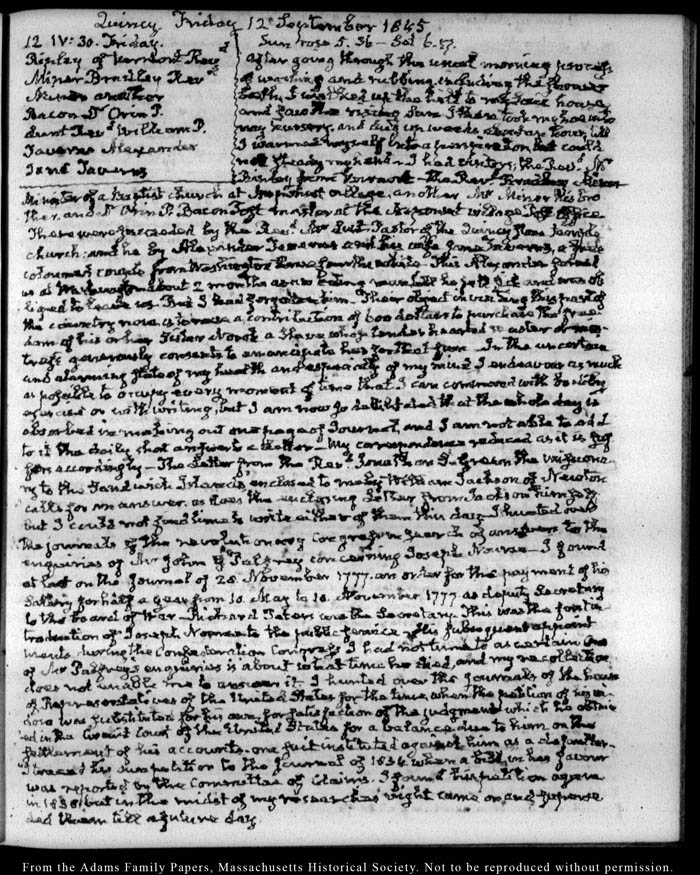 Quincy Friday 12 September 1845
12 IV:30. Friday.
Ripley of Vermont Revd
Miner Bradley Revd
Miner another
Bacon Dr Orin P.
Lunt Revd William P.
Taverns Alexander
Jane Taverns
Sun rose 5.36 — Set 6.57.
After going through the usual morning process
of washing and rubbing, including the shower
bath, I walked up the hill to my
and saw the rising Sun. I then took my hoe into
my nursery, and dug up weeds about an hour, till
I warmed myself into a perspiration but could
not steady my hand. I had visitors, the Revd Mr
Ripley from Vermont the Revd Bradley Miner
Minister of a Baptist church at Neponset village, another Mr Miner his bro
ther, and Dr Orin P. Bacon Post master at the Neponset village Post Office
These were preceded by the Revd Mr Lunt, Pastor of the Quincy Stone Temple
church, and he by Alexander Taverns and his wife Jane Taverns, a free
coloured couple from Washington
us at Washington about 2 months as till he fell sick and was ob
liged to leave us. But I had forgotten him. Their object in visiting this part of
the country now is to raise a contribution of 600 dollars to purchase the free
dom of his or her Sister Norah a Slave whose tender hearted master or mis
tress generously consents to emancipate her for that sum. In the uncertain
and alarming state of my health and especially of my mind I endeavour as much
as possible to occupy every moment of time that I can command with bodily
exercise or with writing, but I am now so debilitated that the whole day is
absorbed in making out one page of Journal, and I am not able to add
to it the daily short answer to a letter — My correspondence reduced as it is suf
fers accordingly — The Letter from the Revd Jonathan S. Green the
ry to the Sandwich Islands, enclosed to me by William Jackson of Newton
calls for an answer, as does the enclosing Letter from Jackson himself
but I could not find time to write either of them this day. I hunted over
the journals of the revolutionary Congress in search of answers to the
enquiries of Mr John G Palfrey concerning Joseph Nourse — I found
at last on the Journal of 28 November 1777. an order for the payment of his
Salary for half a year from 10. May to 10. November 1777 as deputy Secretary
to the board of War — Richard Peters was the Secretary. This was the first in
troduction of Joseph Nourse to the public service. His subsequent appoint
ments during the Confederation Congress I had not time to ascertain One
of Mr Palfrey's enquiries is about what time he died, and my recollection
does not enable me to answer it. I hunted over the journals of the house
of Representatives of the United States for the time, when the petition of his wi
dow was substituted for his own, for satisfaction of the judgment which he obtain
ed in the Circuit Court of the United States for a balance due to him on the
settlement of his accounts, on a suit instituted against him as a defaulter.
I traced his own petition to the Journal of 1834 when a bill in his favour
was reported by the Committee of Claims. I found his petition again
in 1836, but in the midst of my researches night came on and suspen
ded them till a future day.
From the Adams Family Papers, Massachusetts Historical Society. Not to be reproduced without permission.